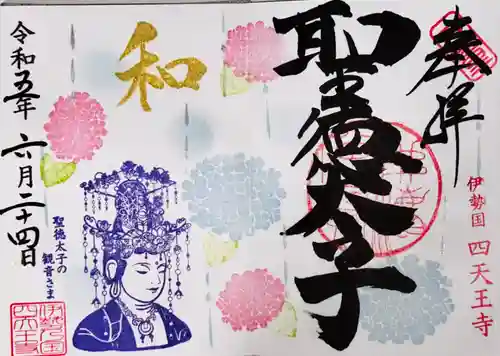 奉拝
伊勢国 四天王寺
聖徳太子
和
令和五年 六月二十四日
聖徳太子の
観音さま